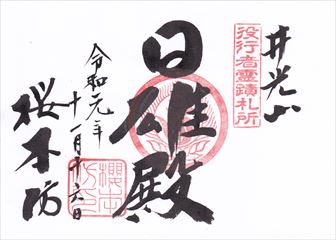 井光山
役行者霊蹟札所
日雄殿
令和元年
十一月十六日
櫻本坊
櫻本坊印